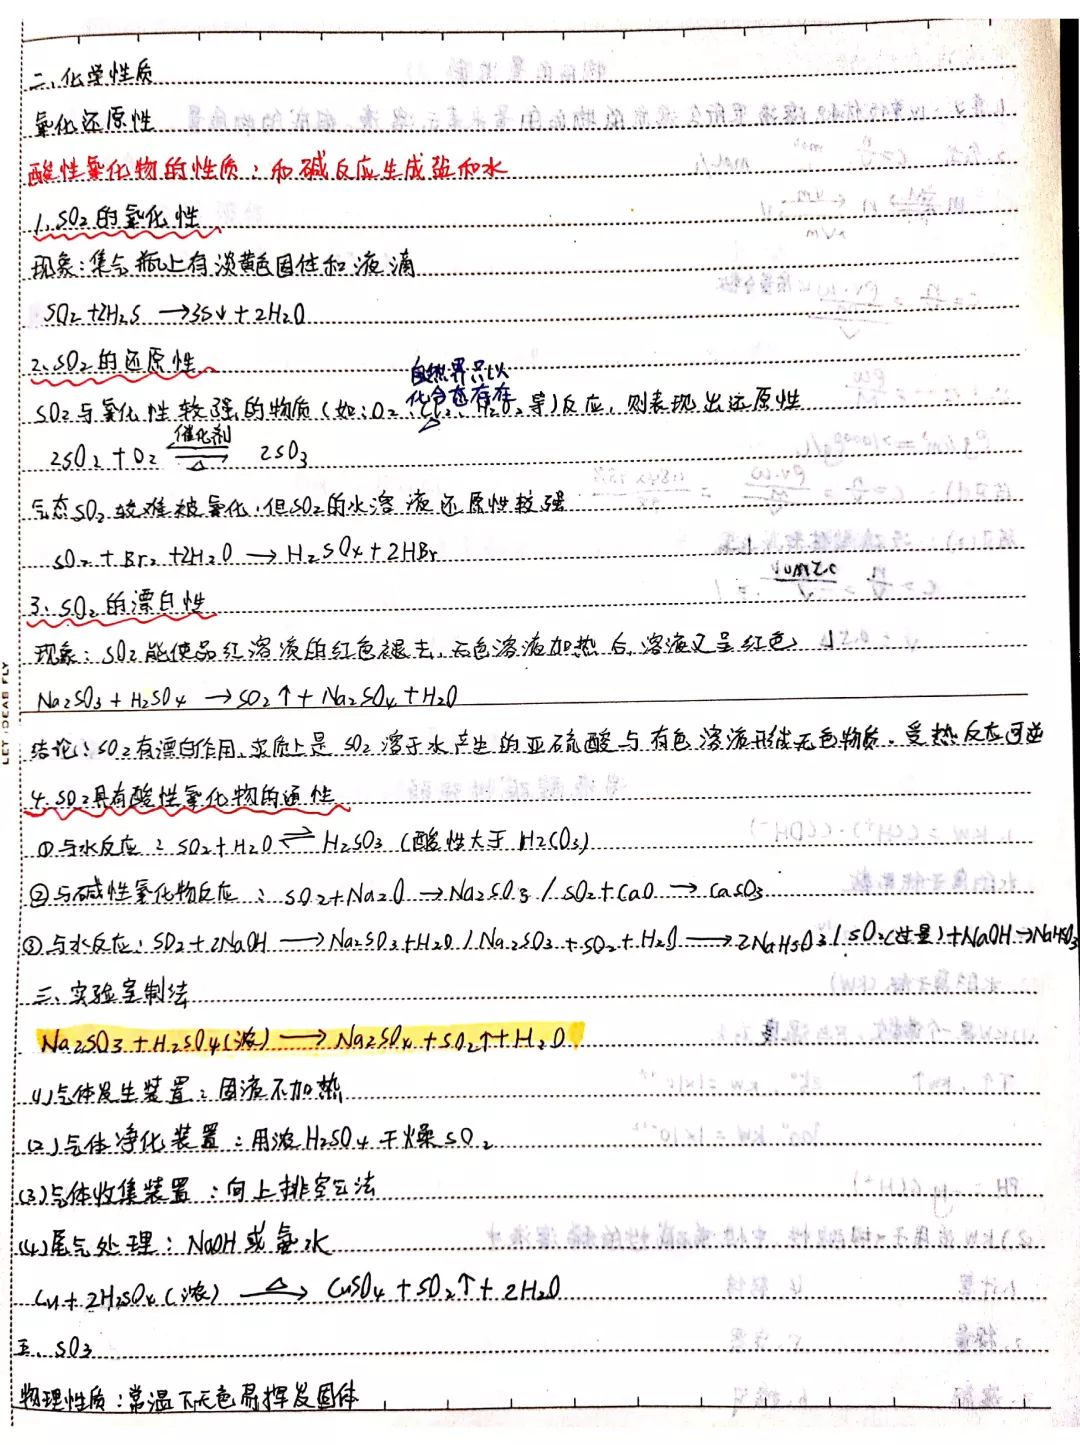 二、化学性质
氧化还原性
酸性氧化物的性质：和碱反应生成盐和水
1、SO₂的氧化性
现象：集气瓶上有淡黄色固体和液滴
SO₂+2H₂S →3S↓+2H₂O
2、SO₂的还原性
自然界只以
化合态存在
SO₂与氧化性较强的物质(如：O₂、Cl₂、H₂O₂等)反应，则表现出还原性
2SO₂+O₂ 催化剂 ⇌ △ 2SO₃
气态SO₂较难被氧化，但SO₂的水溶液还原性较强
SO₂+Br₂+2H₂O→H₂SO₄+2HBr
3、SO₂的漂白性
现象：SO₂能使品红溶液的红色褪去，无色溶液加热后，溶液又呈红色
Na₂SO₃+H₂SO₄ →SO₂↑+Na₂SO₄+H₂O
结论：SO₂有漂白作用，实质上是SO₂溶于水产生的亚硫酸与有色溶液形成无色物质，受热反应可逆
4、SO₂具有酸性氧化物的通性
①与水反应：SO₂+H₂O⇌H₂SO₃(酸性大于H₂CO₃)
②与碱性氧化物反应：SO₂+Na₂O→Na₂SO₃/SO₂+CaO→CaSO₃
③与水反应：SO₂+2NaOH→Na₂SO₃+H₂O/Na₂SO₃+SO₂+H₂O→2NaHSO₃/SO₂(过量)+NaOH→NaHSO₃
三、实验室制法
Na₂SO₃+H₂SO₄(浓)→Na₂SO₄+SO₂↑+H₂O
(1)气体发生装置：固液不加热
(2)气体净化装置：用浓H₂SO₄干燥SO₂
(3)气体收集装置：向上排空气法
(4)尾气处理：NaOH或氨水
Cu+2H₂SO₄(浓) △→ CuSO₄+SO₂↑+2H₂O
五、SO₃
物理性质：常温下无色易挥发固体
LET IDEAS FLY